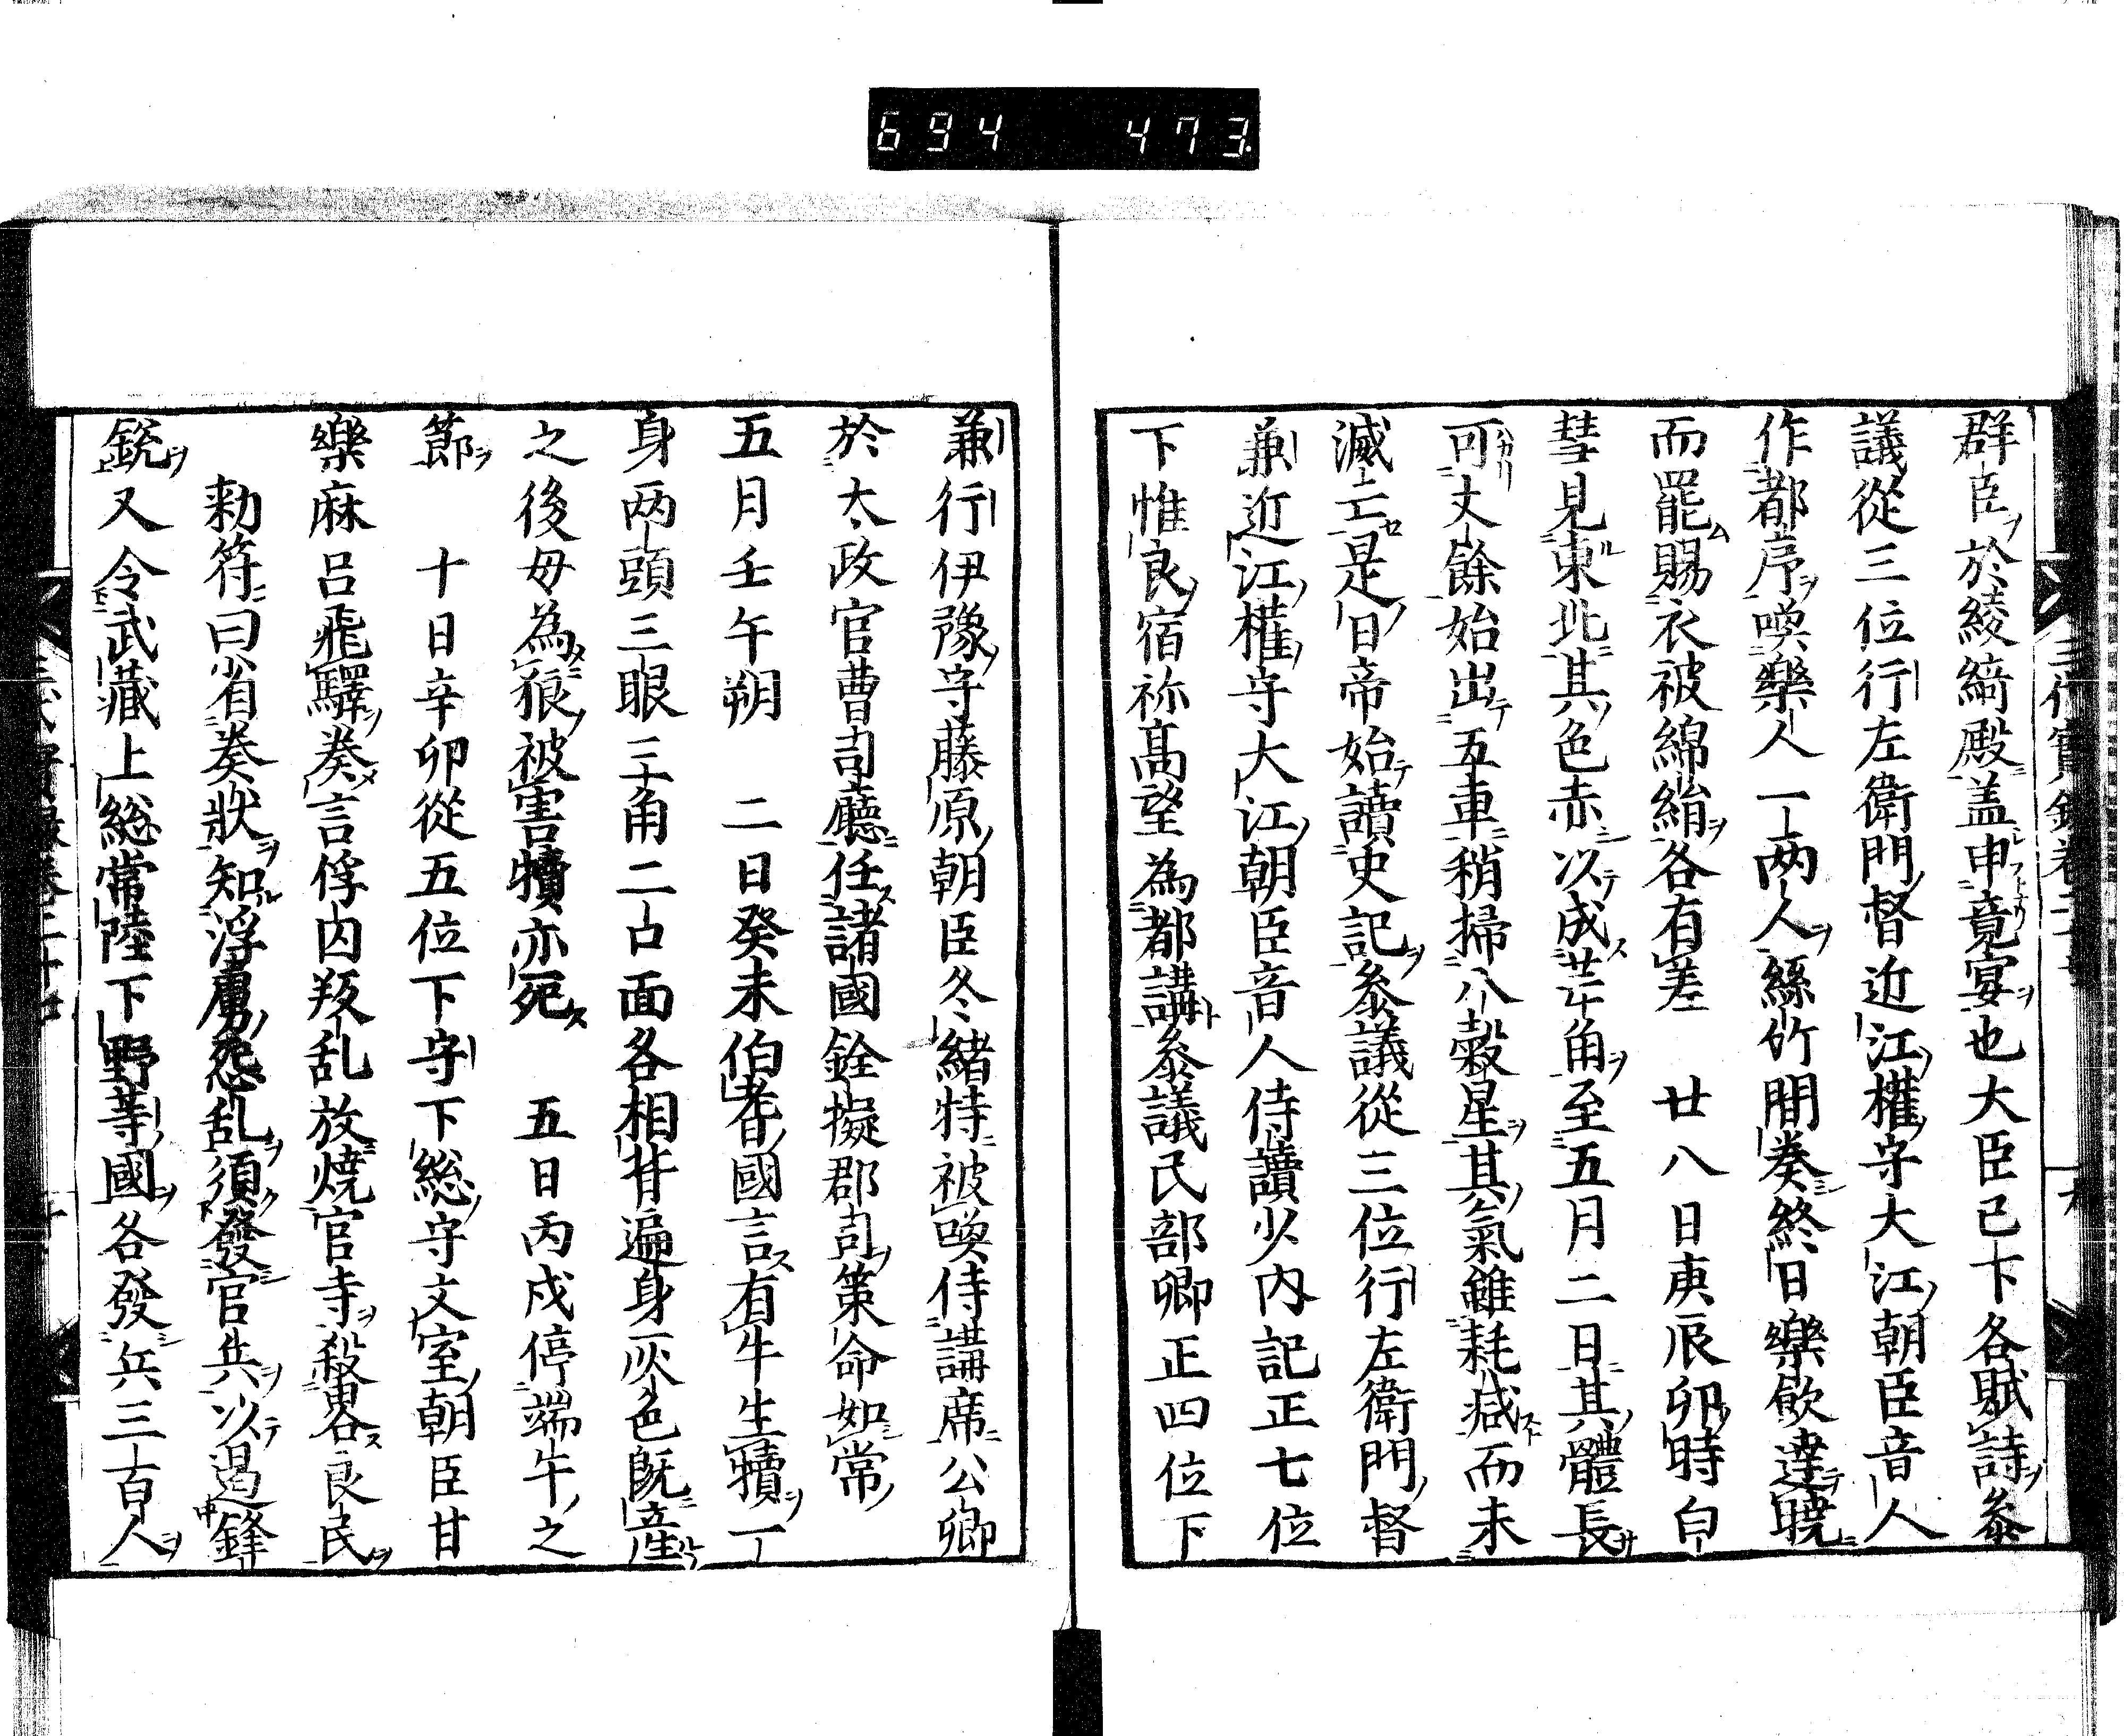 694 473
群臣於綾綺殿盖申竟宴也大臣已下各賦詩叅
議從三位行左衛門督近江權守大江朝臣音人
作都序喚樂人一两人絲竹間奏終日樂飲達曉
而罷賜衣被綿絹各有差 廿八日庚辰卯時白
彗見東北其色赤以成芒角至五月二日其體長
可丈餘始出五車稍掃八穀星其氣雖耗减而未
滅亡是日帝始讀史記叅議從三位行左衛門督
兼近江權守大江朝臣音人侍讀少内記正七位
下惟良宿祢髙望為都講叅議民部卿正四位下
兼行伊豫守藤原朝臣冬緒特被喚侍講席公卿
於太政官曹司廳任諸國銓擬郡司策命如常
五月壬午朔 二日癸未伯耆國言有牛生犢一
身两頭三眼三角二口面各相背遍身灰色旣産
之後母為狼被害犢亦死 五日丙戌停端午之
節 十日辛卯從五位下守下総守文室朝臣甘
樂麻呂飛驛奏言俘囚叛乱放燒官寺殺畧良民
勅符曰省奏狀知浮虜怨乱須發官兵以遏鋒
鋭又令武藏上総常陸下野等國各發兵三百人